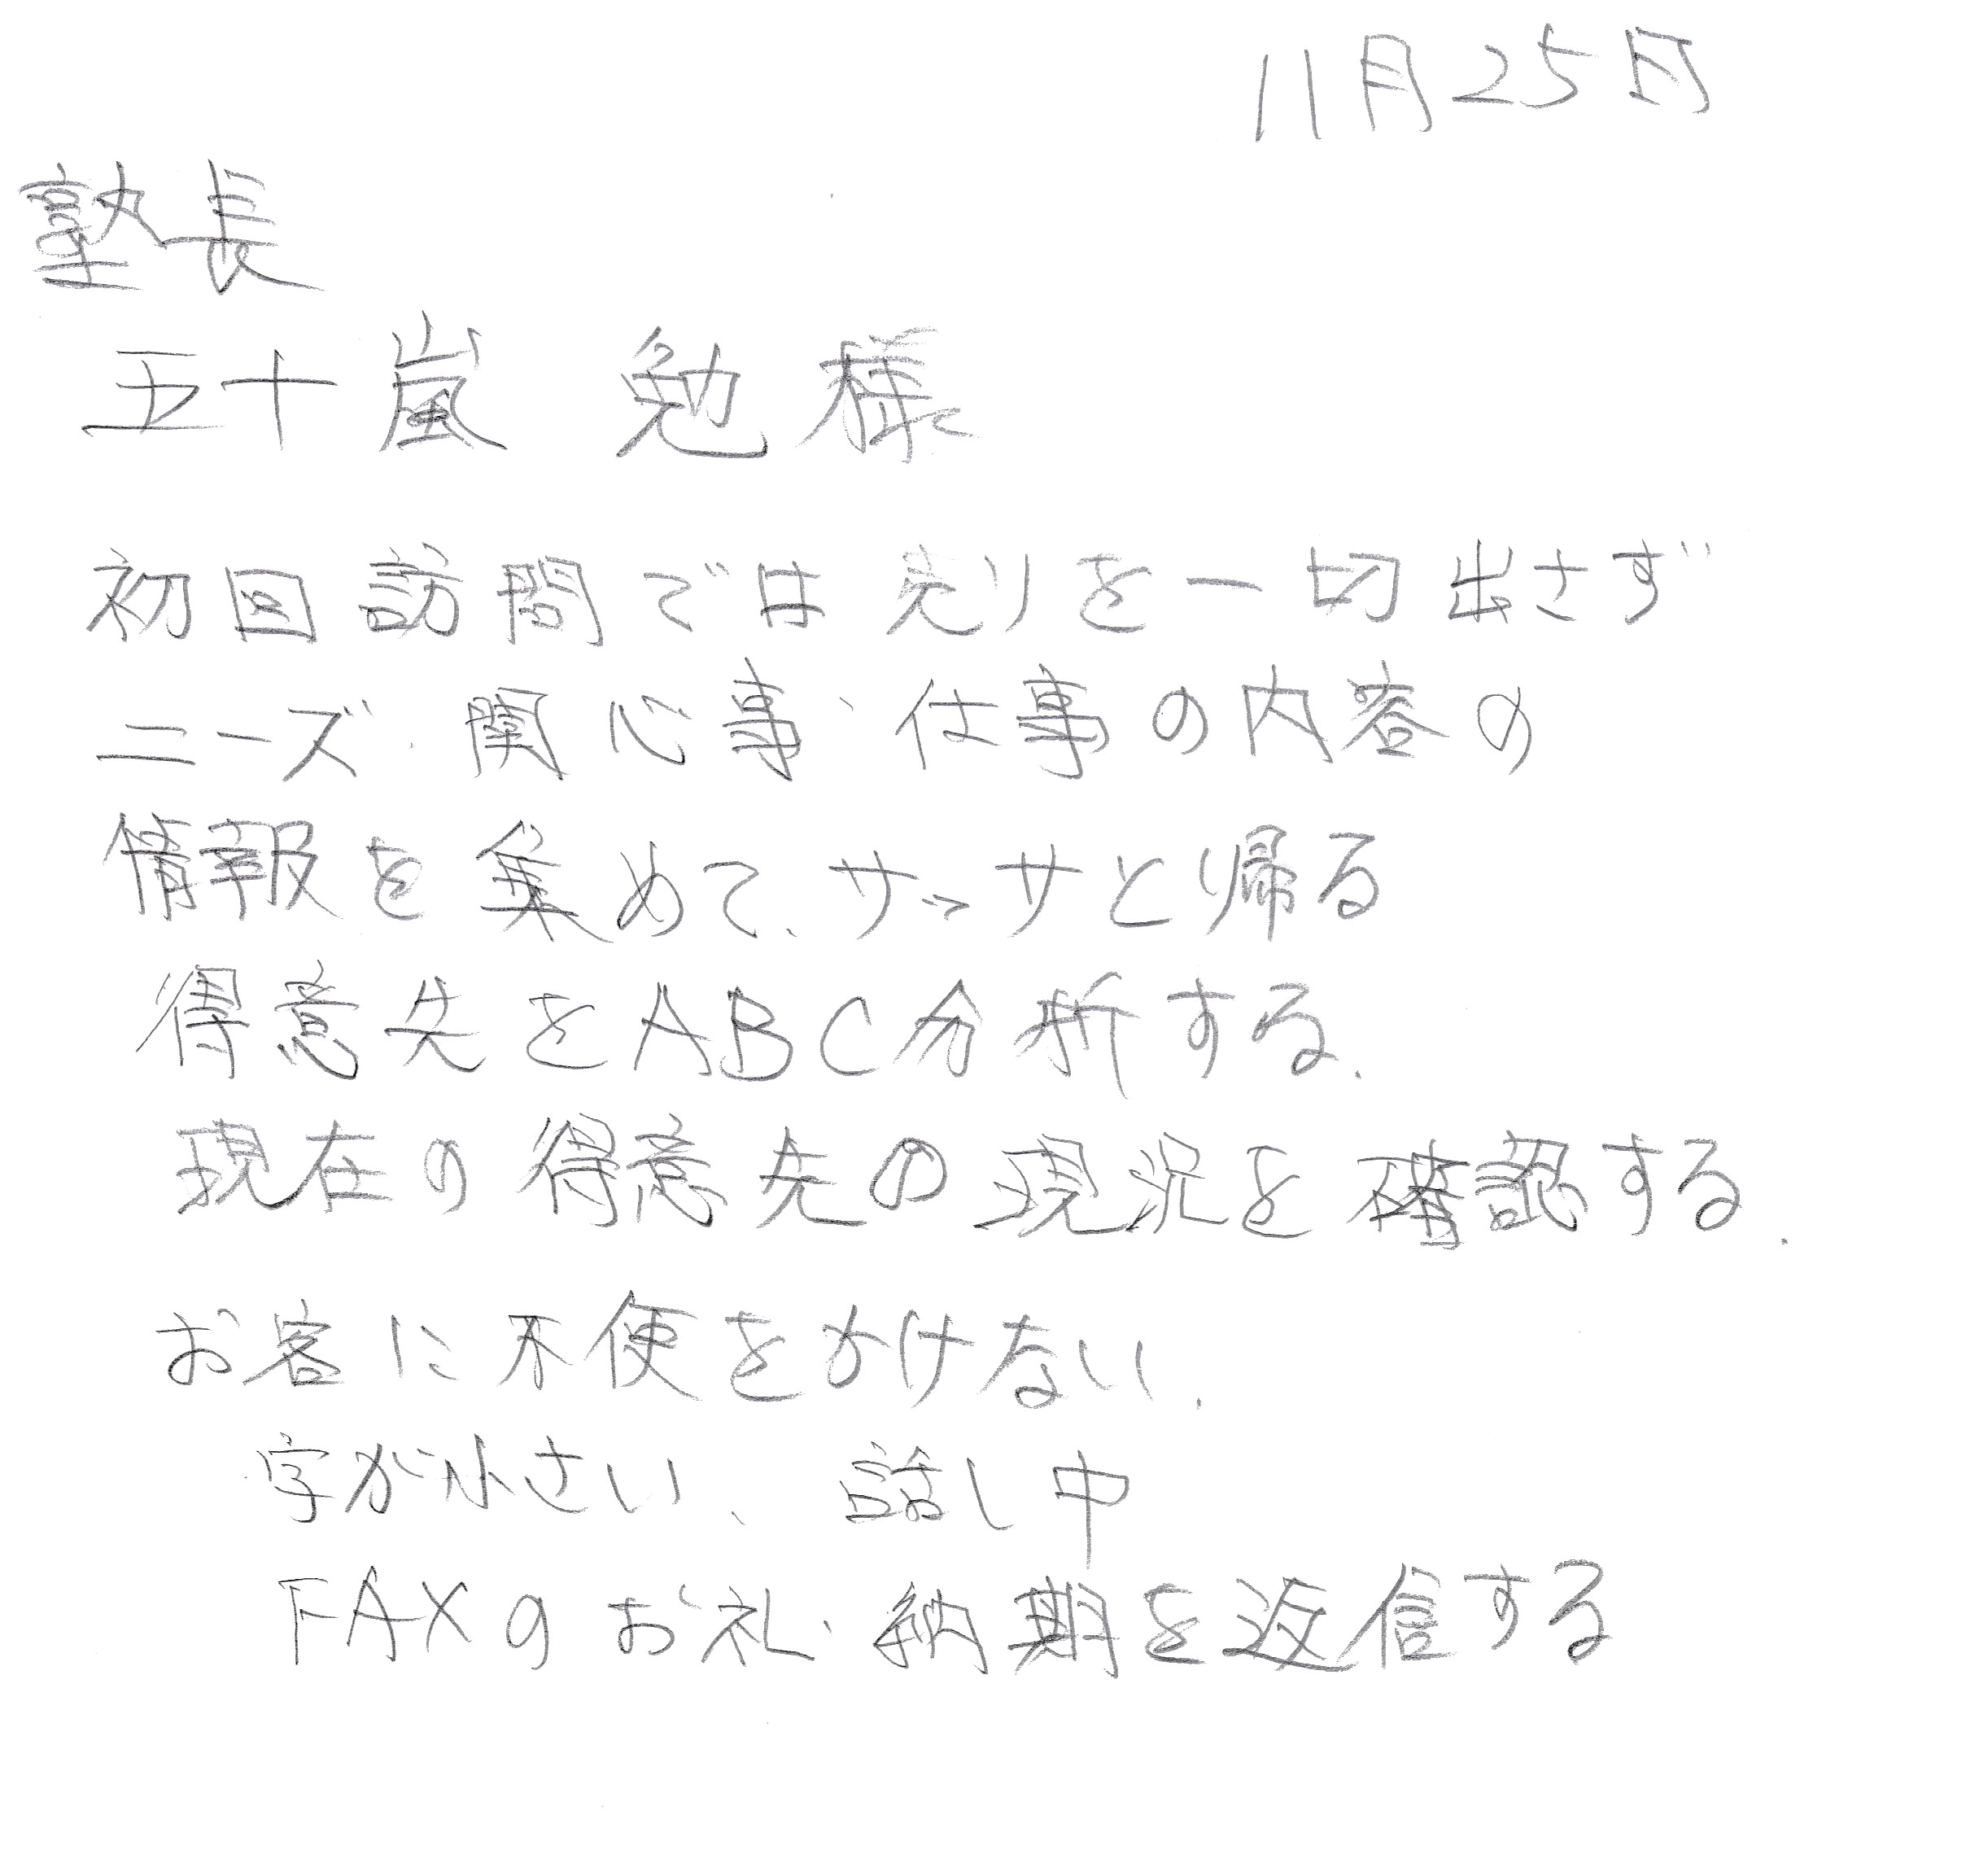 11月25日
塾長
五十嵐 勉様
初回訪問では売りを一切出さず
ニーズ、関心事、仕事の内容の
情報を集めて、サッサと帰る
得意先をABC分析する.
現在の得意先の現況を確認する.
お客に不便をかけない.
字が小さい、話し中
FAXのお礼、納期を返信する